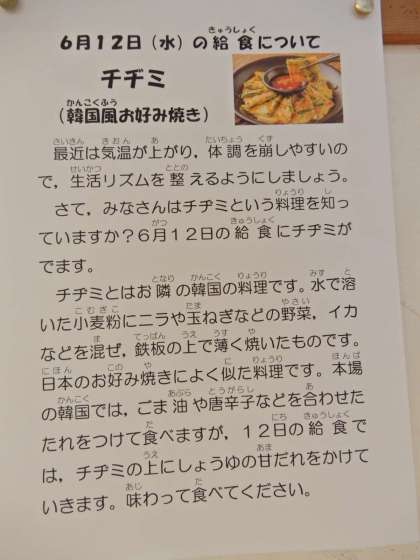 6月12日（水）の給食について
チヂミ
（韓国風お好み焼き）
最近は気温が上がり，体調を崩しやすいの
で，生活リズムを整えるようにしましょう。
さて，みなさんはチヂミという料理を知っ
ていますか？6月12日の給食にチヂミが
でます。
チヂミとはお隣の韓国の料理です。水で溶
いた小麦粉にニラや玉ねぎなどの野菜，イカ
などを混ぜ，鉄板の上で薄く焼いたものです。
日本のお好み焼きによく似た料理です。本場
の韓国では，ごま油や唐辛子などを合わせた
たれをつけて食べますが，12日の給食で
は，チヂミの上にしょうゆの甘だれをかけて
いきます。味わって食べてください。